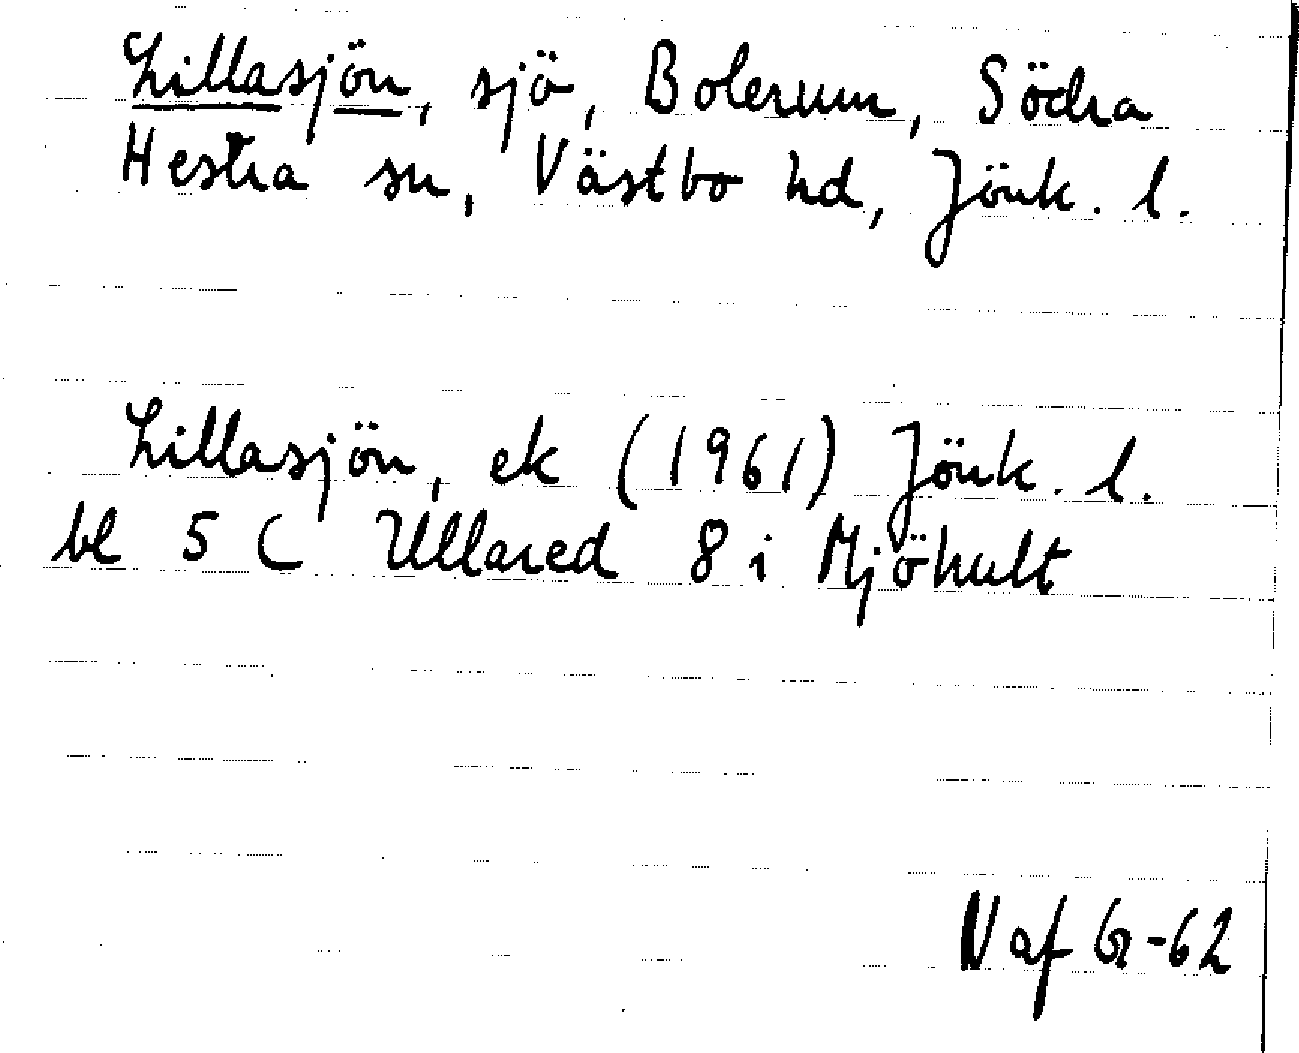 Lillasjön, sjö, Bolerum, Södra
Hestra sn, Västbo hd, Jönk. l.
Lillasjön, ek (1961) Jönk. l.
bl 5 C Ullared 8 i Mjöhult
N af Gr-62